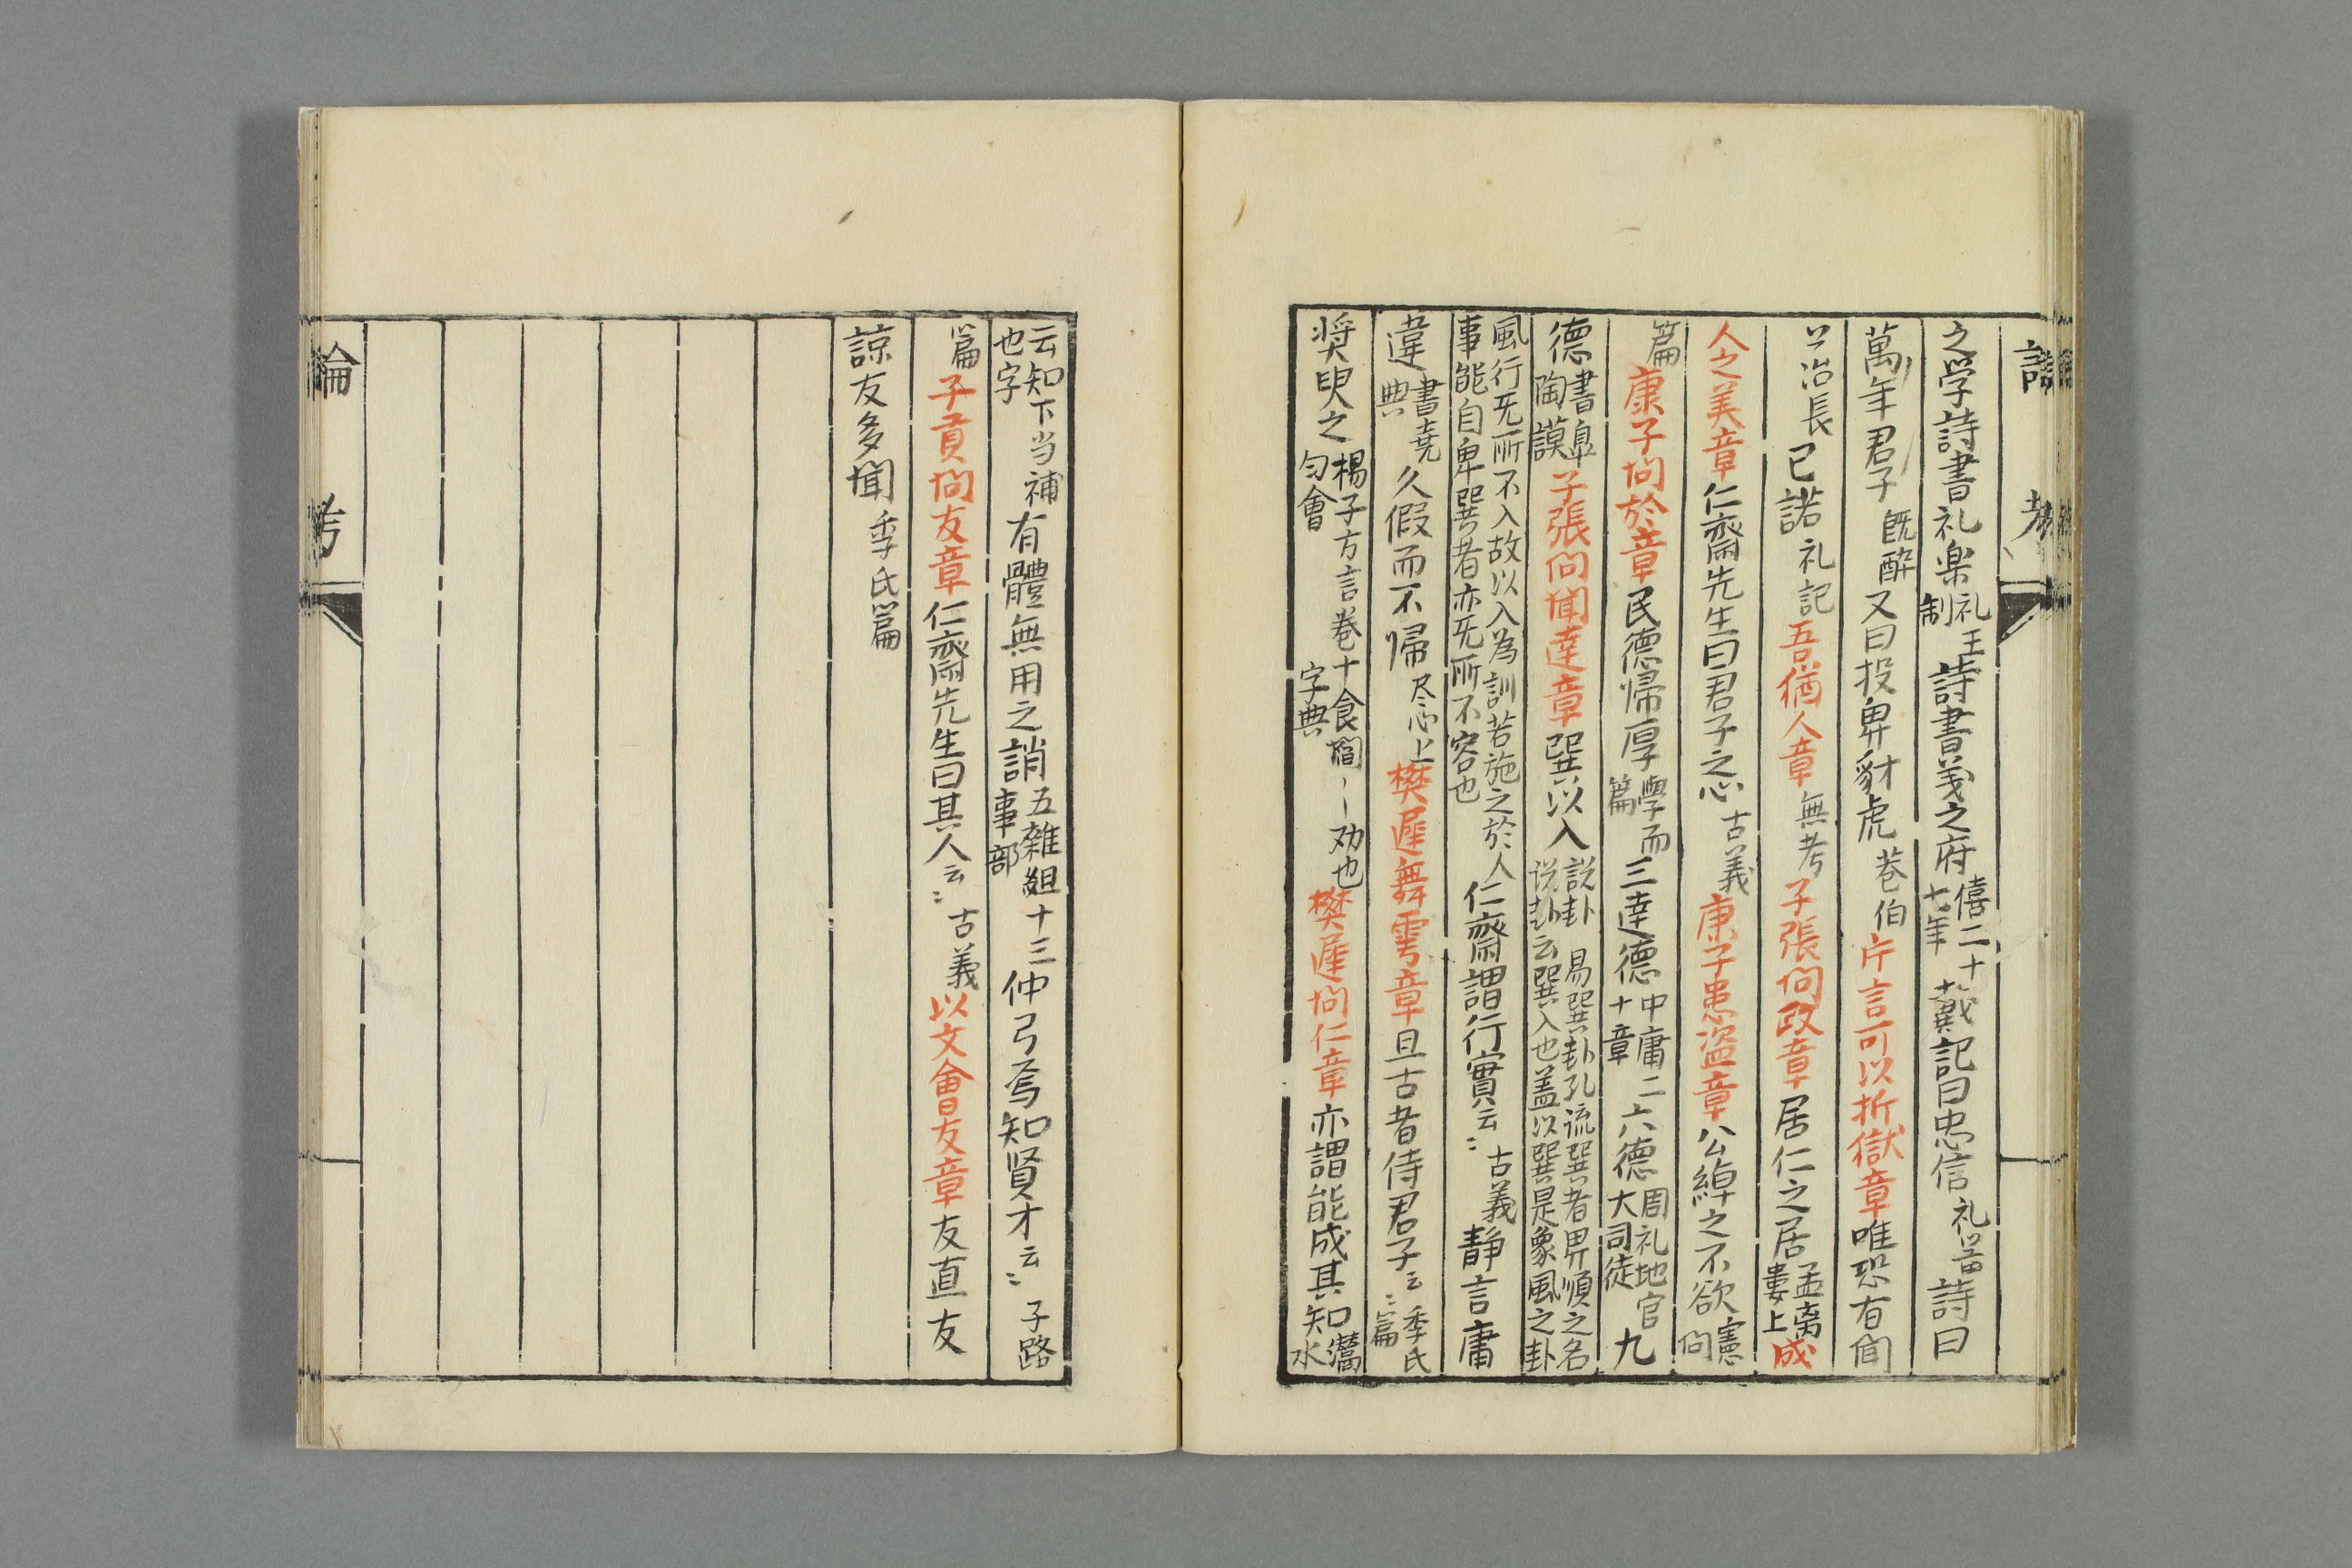 之学詩書礼楽礼王制詩書義之府僖二十七年戴記曰忠信礼器詩曰
萬年君子既酔又曰投畀豺虎巷伯片言可以折獄章唯恐有聞
公冶長已諾礼記吾猶人章無考子張問政章居仁之居孟离婁上成
人之美章仁齋先生曰君子之心古義康子患盗章公綽之不欲憲問
篇康子問於章民德帰厚學而篇三達德中庸二十章六德周礼地官大司徒九
德書皐陶謨子張問聞達章巽以入説卦説卦云巽入也蓋以巽是象風之卦易巽卦孔疏巽者卑順之名
風行旡所不入故以入為訓若施之於人事能自卑巽者亦旡所不容也仁齋謂行實云〻古義静言庸
違書尭典久假而不帰尽心上樊遲舞雩章且古者侍君子云〻季氏篇
奨臾之楊子方言巻十食閻〻勧也匀會字典樊遲問仁章亦謂能成其知灊水
云知下当補也字有體無用之誚五雜組十三事部仲弓焉知賢才云〻子路
篇子貢問友章仁齋先生曰其人云〻古義以文會友章友直友
諒友多聞季氏篇
論
考